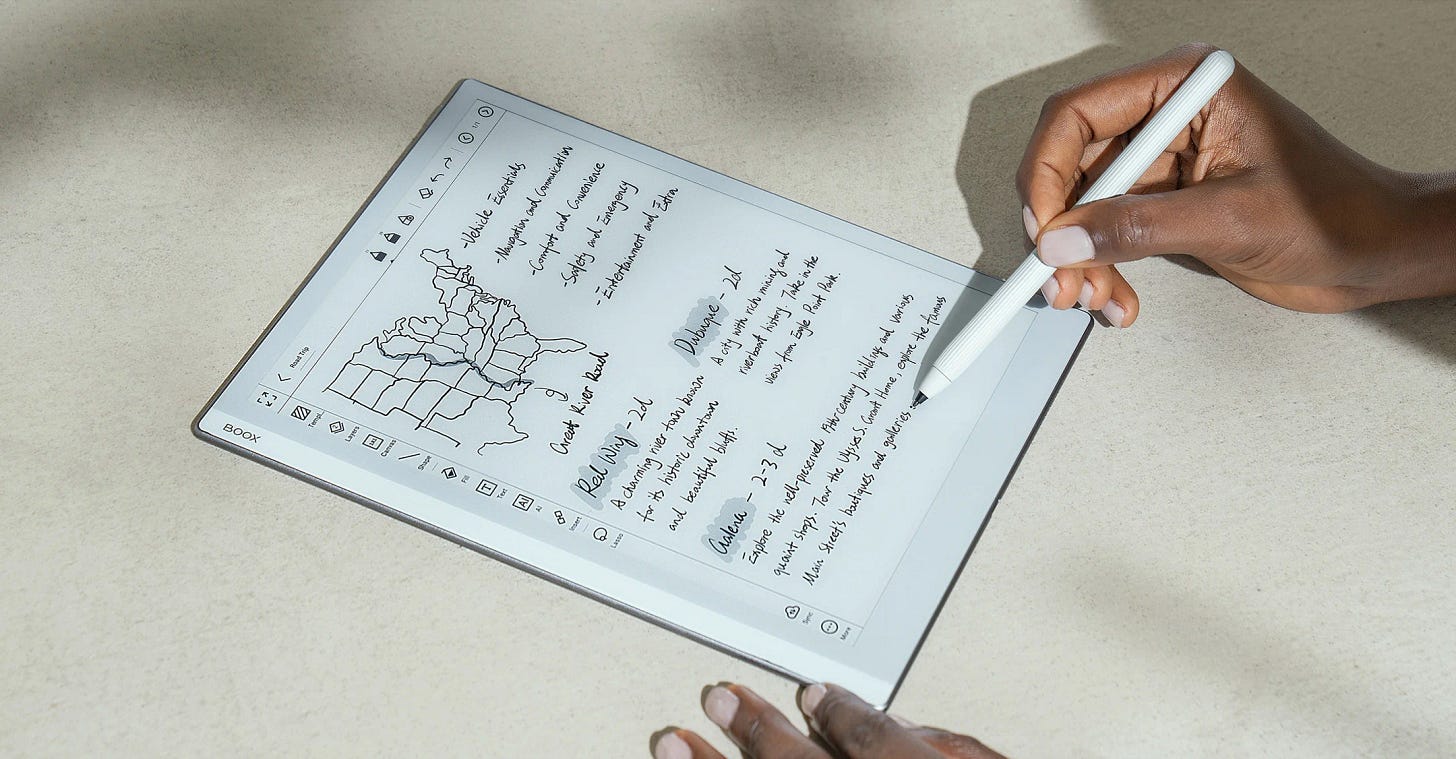 BOOX
Road Trip
1/1
Templ..
Layers
Canvas
Shape
Fill
Text
AI
AI
Insert
Lasso
Sync
More
-Vehicle Essentials
-Navigation and Communication
-Comfort and Convenience
-Safety and Emergency
-Entertainment and Extra
Great River Road
Red Wing - 2d
A charming river town known
for its historic downtown
and beautiful bluffs.
Dubuque - 2d
A city with rich mining and
riverboat history. Take in the
views from Eagle Point Park.
Galena - 2-3 d
Explore the well-preserved 19th century buildings and various
quaint shops. Tour the Ulysses S. Grant Home, explore the famous
Main Street's boutiques and galleries.